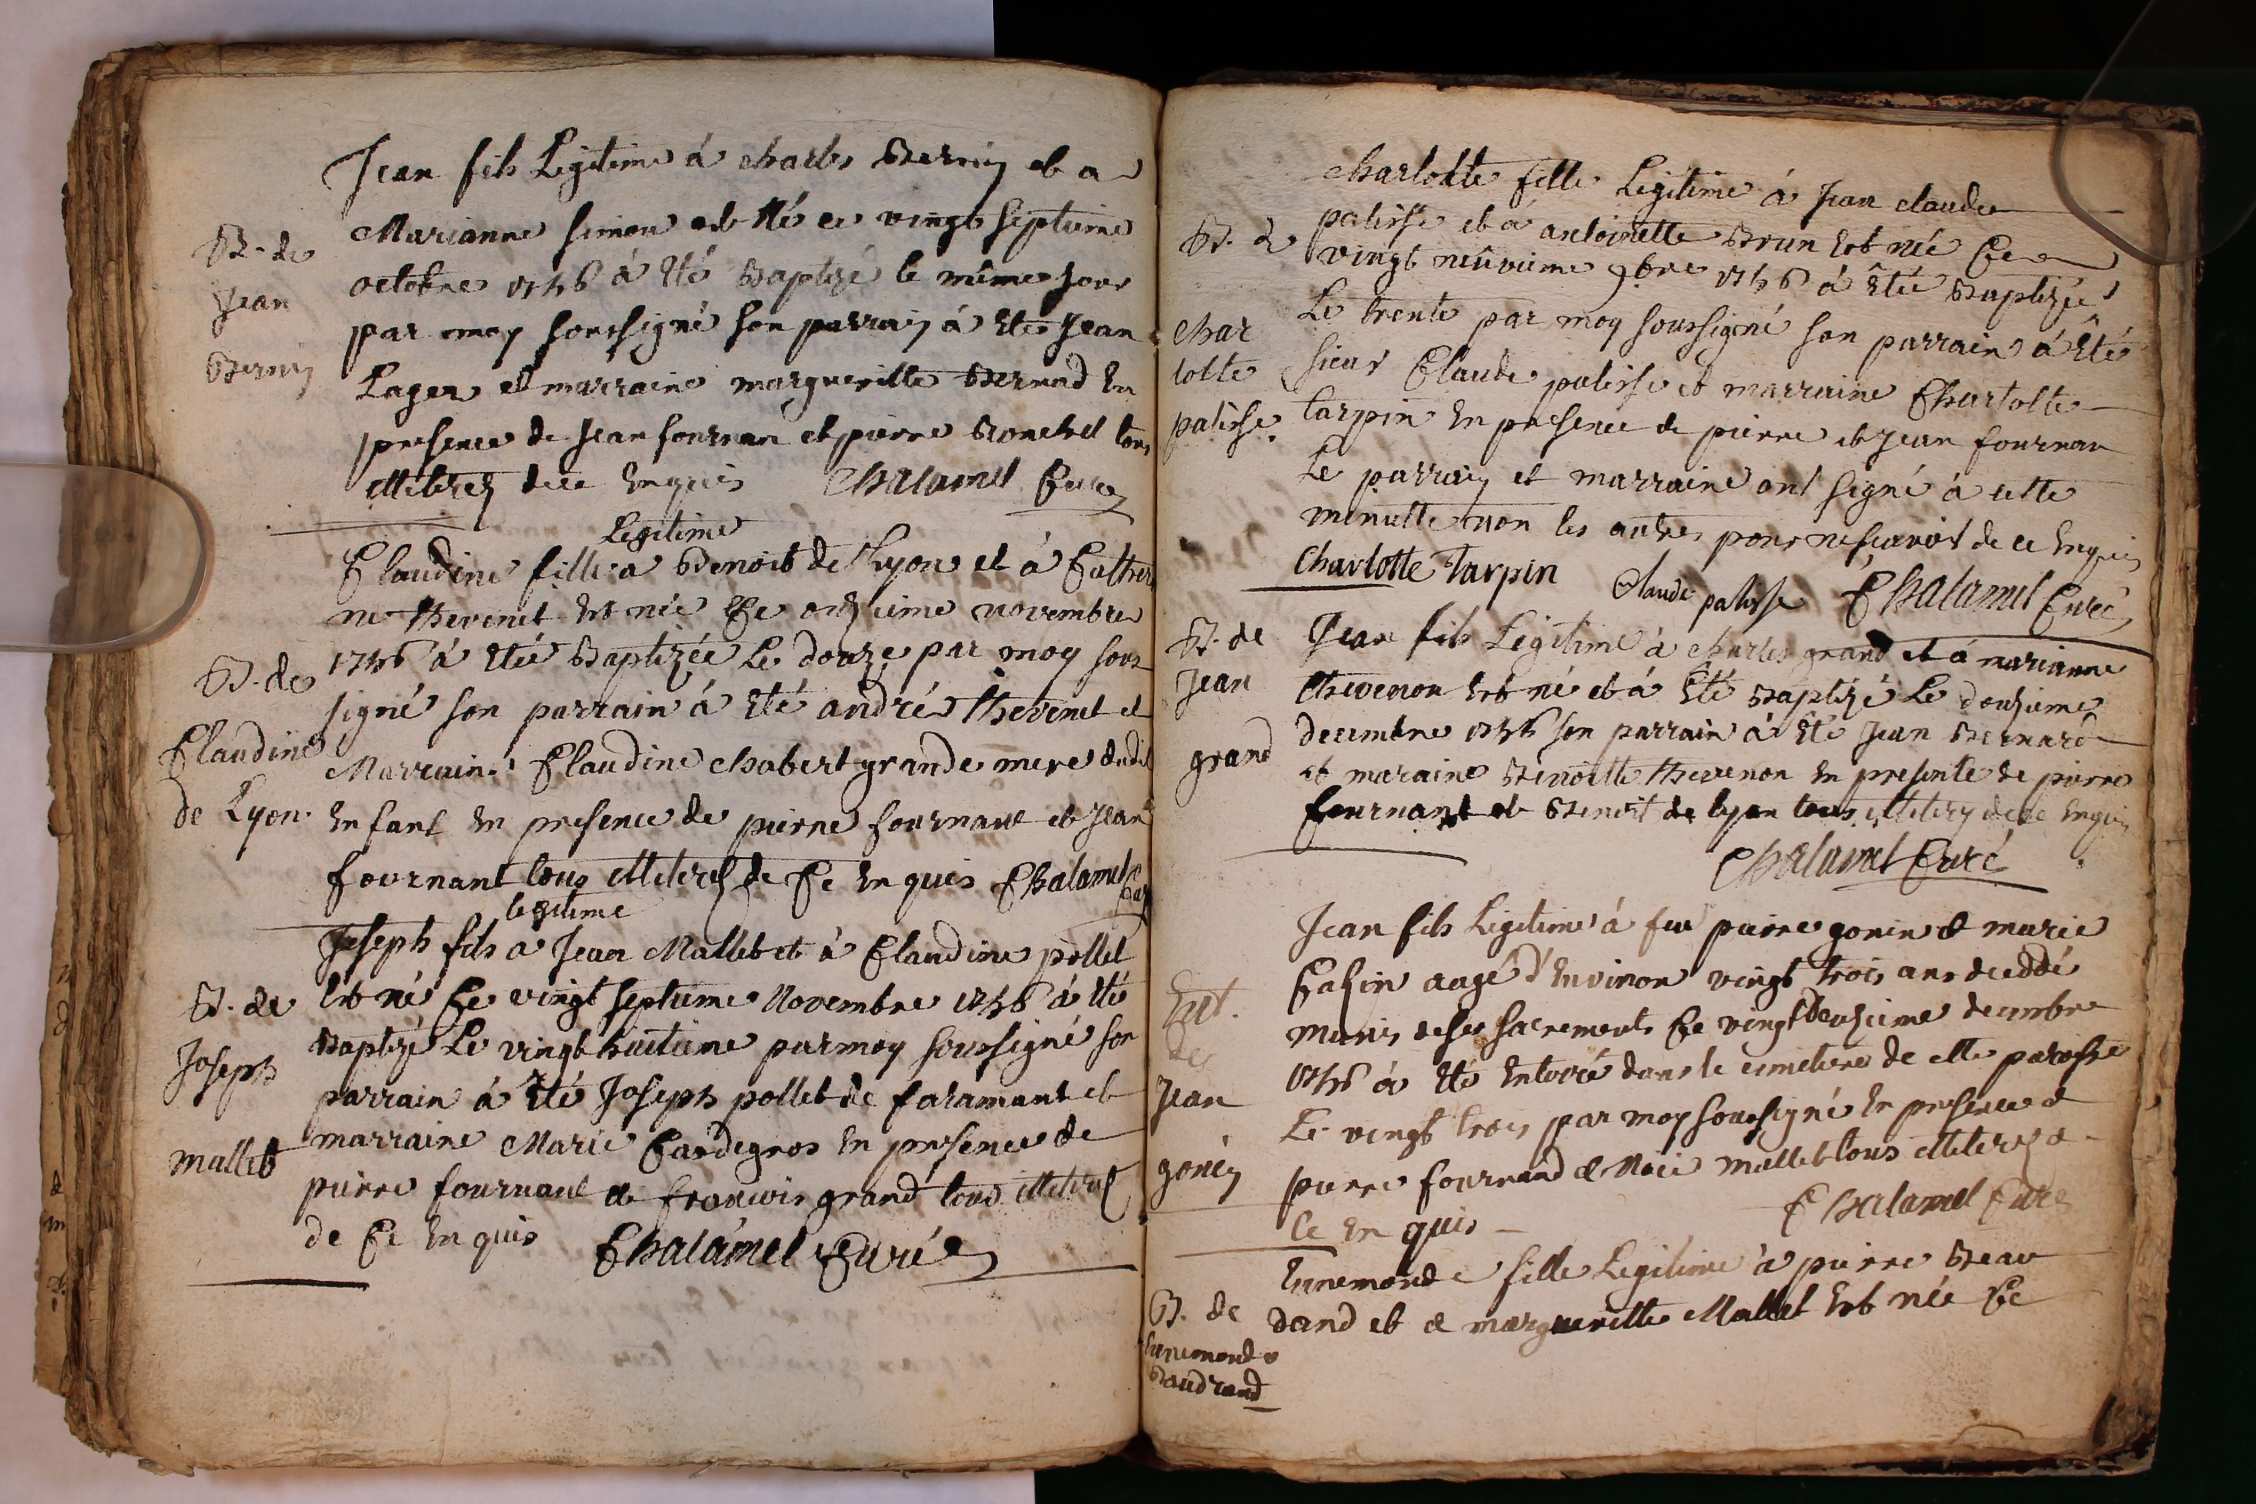 Jean fils Legitime à charles Bernin et a
Marianne simon est né ce vingt septieme
octobre 1746 à Eté Baptizé le même jour
par moy soussigné son parrain à Eté Jean
Lager et marraine margueritte Bernard En
presence de Jean fournan et pierre Bonchel tous
illiterez de ce Enquis Chalamel Curé
B. de
Jean
Bernin
Legitime
Claudine fille a Benoit de Lyon et à Catheri
ne thevenet Est née Ce onzieme novembre
1746 à Eteé Baptizée Le douze par moy sous
signé son parrain à Eté andré thevenet et
Marraine Claudine chabert grande mere dudit
Enfant En presence de pierre fournant et Jean
fournant tous illiterez de Ce Enquis Chalamel Curé
B. de
Claudine
de Lyon
legitime
Joseph fils a Jean Mallet et à Claudine pollet
Est né Ce vingt septieme Novembre 1746 à Eté
Baptizé Le vingt huitieme par moy soussigné son
parrain à Eté Joseph pollet de faramant et
marraine Marie Cardegros En presence de
pierre fournant et francois grand tous illiterez
de Ce Enquis Chalamel Curé
B. de
Joseph
mallet
charlotte fille Legitime à Jean claude
palisse et à antoinette Brun Est née Ce
vingt neûvieme 9bre 1746 à Êteé Baptizée
Le trente par moy soussigné son parrain à Êté
sieur Claude palisse et marraine Charlotte
tarpin En presence de pierre et Jean fournan
Le parrain et marraine ont signé à cette
minutte non les autres pour ne sçavoir de ce Enquis
Charlotte Tarpin Claude palisse Chalamel Curé
B. de
char
lotte
palisse.
Jean fils Legitime à charles grand et à marianne
thevenon Est né et à Êté Baptizé Le douzieme
decembre 1746 son parrain à Eté Jean Bernard
et maraine Benoitte thevenon En presente de pierre
fournant et Benoit de lyon tous illiterez de ce Enquis
Chalamel Curé
B. de
Jean
grand
Jean fils Legitime à feu pierre gonin et marie
Cazin aagé d'Environ vingt trois ans deceddé
munis de ses sacrements Ce vingt deuzieme decembre
1746 à Eté Enterré dans le cimetiere de cette paroisse
Le vingt trois par moy soussigné En presence de
pierre fournand et Noië mallet tous illiterez de
Ce Enquis Chalamel Curé
Ent.
de
Jean
gonin
Ennemonde fille Legitime à pierre Beau
dand et a margueritte Mallet Est née Ce
B. de
Ennemonde
Baudrand